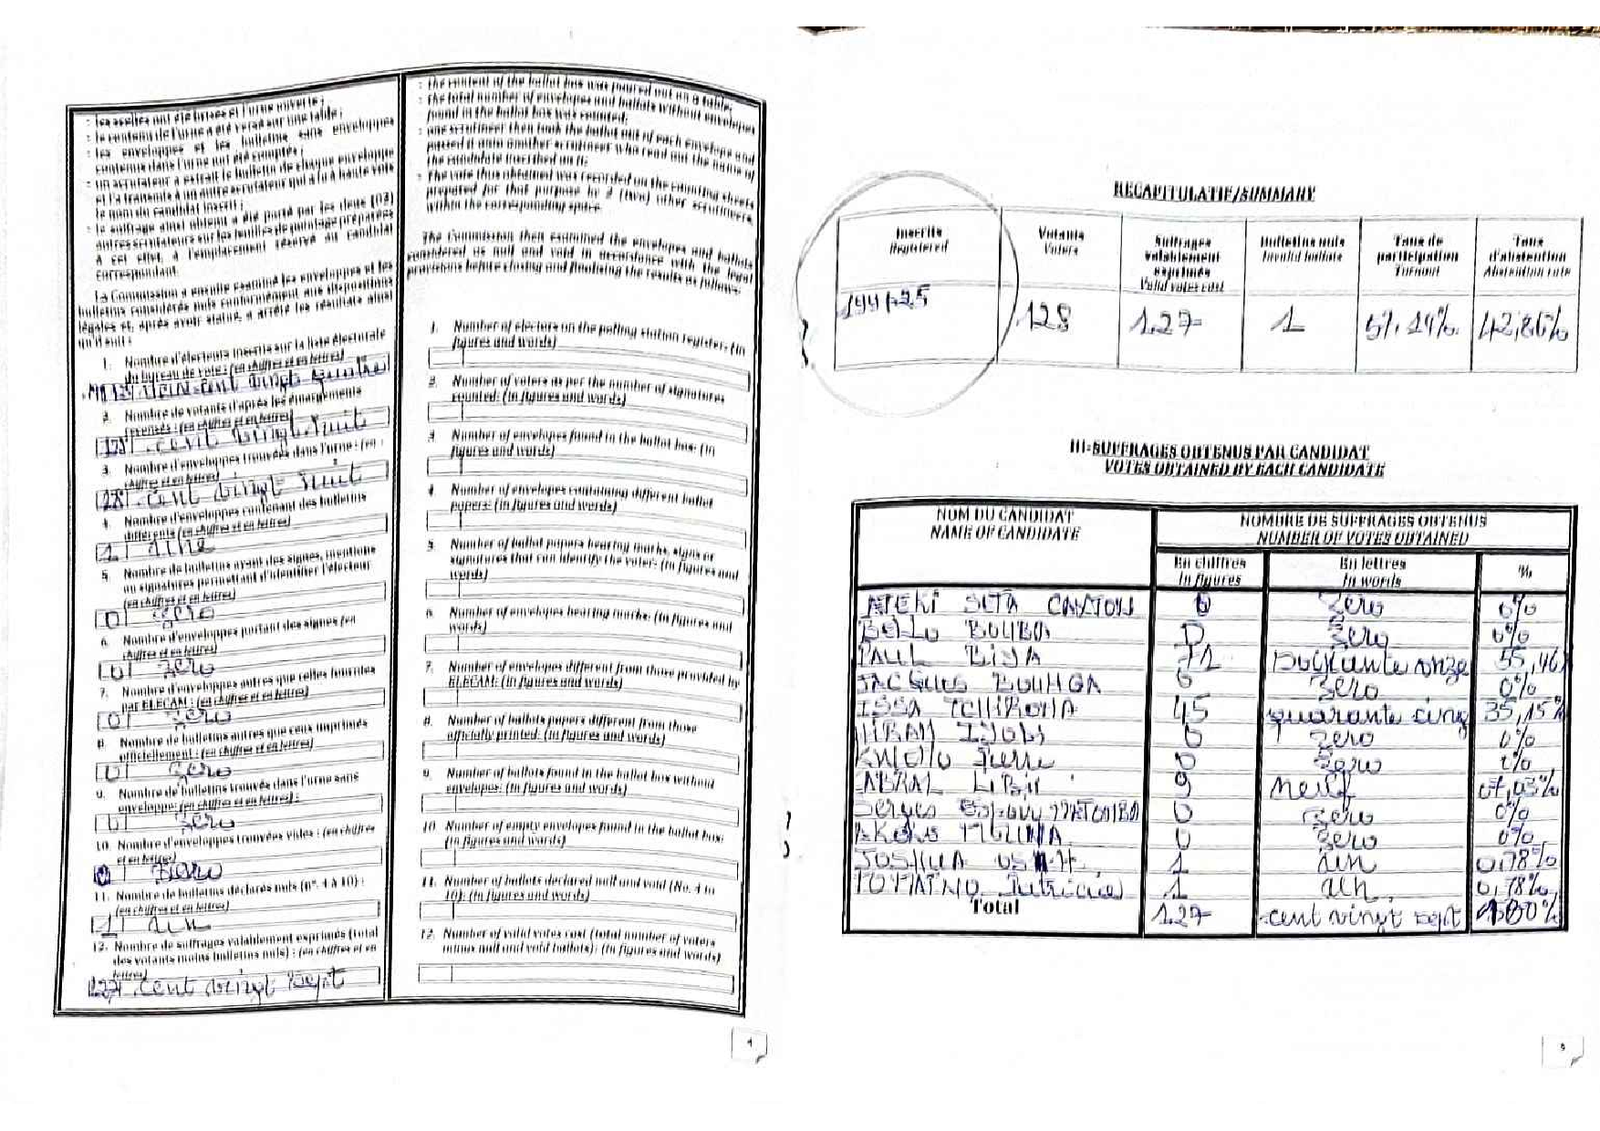 - les scellés ont été brisés et l'urne ouverte ;
- le contenu de l'urne a été versé sur une table ;
- les enveloppes et les bulletins sans enveloppes
contenus dans l'urne ont été comptés ;
- un scrutateur a extrait le bulletin de chaque enveloppe
et l'a transmis à un autre scrutateur qui a lu à haute voix
le nom du candidat inscrit ;
- le suffrage ainsi obtenu a été porté par les deux (02)
autres scrutateurs sur les feuilles de pointage préparées
à cet effet, à l'emplacement réservé au candidat
correspondant.
La Commission a ensuite examiné les enveloppes et les
bulletins considérés nuls conformément aux dispositions
légales et, après avoir statué, a arrêté les résultats ainsi
qu'il suit :
1. Nombre d'électeurs inscrits sur la liste électorale
du bureau de vote : (en chiffres et en lettres)
cent vingt
2. Nombre de votants d'après les émargements
recensés : (en chiffres et en lettres)
128 cent vingt huit
3. Nombre d'enveloppes trouvées dans l'urne : (en
chiffres et en lettres)
128 cent vingt huit
4. Nombre d'enveloppes contenant des bulletins
différents (en chiffres et en lettres)
1 une
5. Nombre de bulletins ayant des signes, mentions
ou signatures permettant d'identifier l'électeur
(en chiffres et en lettres)
0 zéro
6. Nombre d'enveloppes portant des signes (en
chiffres et en lettres)
0 zéro
7. Nombre d'enveloppes autres que celles fournies
par ELECAM : (en chiffres et en lettres)
0 zéro
8. Nombre de bulletins autres que ceux imprimés
officiellement : (en chiffres et en lettres)
0 zéro
9. Nombre de bulletins trouvés dans l'urne sans
enveloppe : (en chiffres et en lettres) :
0 zéro
10. Nombre d'enveloppes trouvées vides : (en chiffres
et en lettres)
0 zéro
11. Nombre de bulletins déclarés nuls (n°. 4 à 10) :
(en chiffres et en lettres)
1 un
12. Nombre de suffrages valablement exprimés (total
des votants moins bulletins nuls) : (en chiffres et en
lettres)
127 cent vingt sept
- the content of the ballot box was poured out on a table;
- the total number of envelopes and ballots without envelopes
found in the ballot box was counted;
- one scrutineer then took the ballot out of each envelope and
passed it onto another scrutineer who read out the name of
the candidate inscribed on it;
- The vote thus obtained was recorded on the counting sheets
prepared for that purpose by 2 (two) other scrutineers,
within the corresponding space.
The Commission then examined the envelopes and ballots
considered as null and void in accordance with the legal
provisions before closing and finalizing the results as follows:
1. Number of electors on the polling station register: (in
figures and words)
2. Number of voters as per the number of signatures
counted: (in figures and words)
3. Number of envelopes found in the ballot box: (in
figures and words)
4. Number of envelopes containing different ballot
papers: (in figures and words)
5. Number of ballot papers bearing marks, signs or
signatures that can identify the voter: (in figures and
words)
6. Number of envelopes bearing marks: (in figures and
words)
7. Number of envelopes different from those provided by
ELECAM: (in figures and words)
8. Number of ballots papers different from those
officially printed: (in figures and words)
9. Number of ballots found in the ballot box without
envelopes: (in figures and words)
10. Number of empty envelopes found in the ballot box:
(in figures and words)
11. Number of ballots declared null and void (No. 4 to
10): (in figures and words)
12. Number of valid votes cast (total number of voters
minus null and void ballots): (in figures and words)
4
RECAPITULATIF/SUMMARY
Inscrits Registered
Votants Voters
Suffrages valablement exprimés Valid votes cast
Bulletins nuls Invalid ballots
Taux de participation Turnout
Taux d'abstention Abstention rate
128 127 1 57,14% 42,86%
III-SUFFRAGES OBTENUS PAR CANDIDAT
VOTES OBTAINED BY EACH CANDIDATE
NOM DU CANDIDAT
NAME OF CANDIDATE
NOMBRE DE SUFFRAGES OBTENUS
NUMBER OF VOTES OBTAINED
En chiffres In figures
En lettres In words
%
ATEKI SETA CAXTON 0 zéro 0%
BELLO BOUBA 0 zéro 0%
PAUL BIYA 71 soixante onze 55,46
JACQUES BOUHGA 0 zéro 0%
ISSA TCHIROMA 45 quarante cinq 35,15%
HIRAM IYODI 0 zéro 0%
KWEMO Pierre 0 zéro 0%
CABRAL LIBII 9 neuf 07,03%
Serges Espoir MATOMBA 0 zéro 0%
AKERE MUUNA 0 zéro 0%
JOSHUA OSIH 1 un 0,78%
TOMAINO Patricia 1 un 0,78%
Total 127 cent vingt sept 100%
5